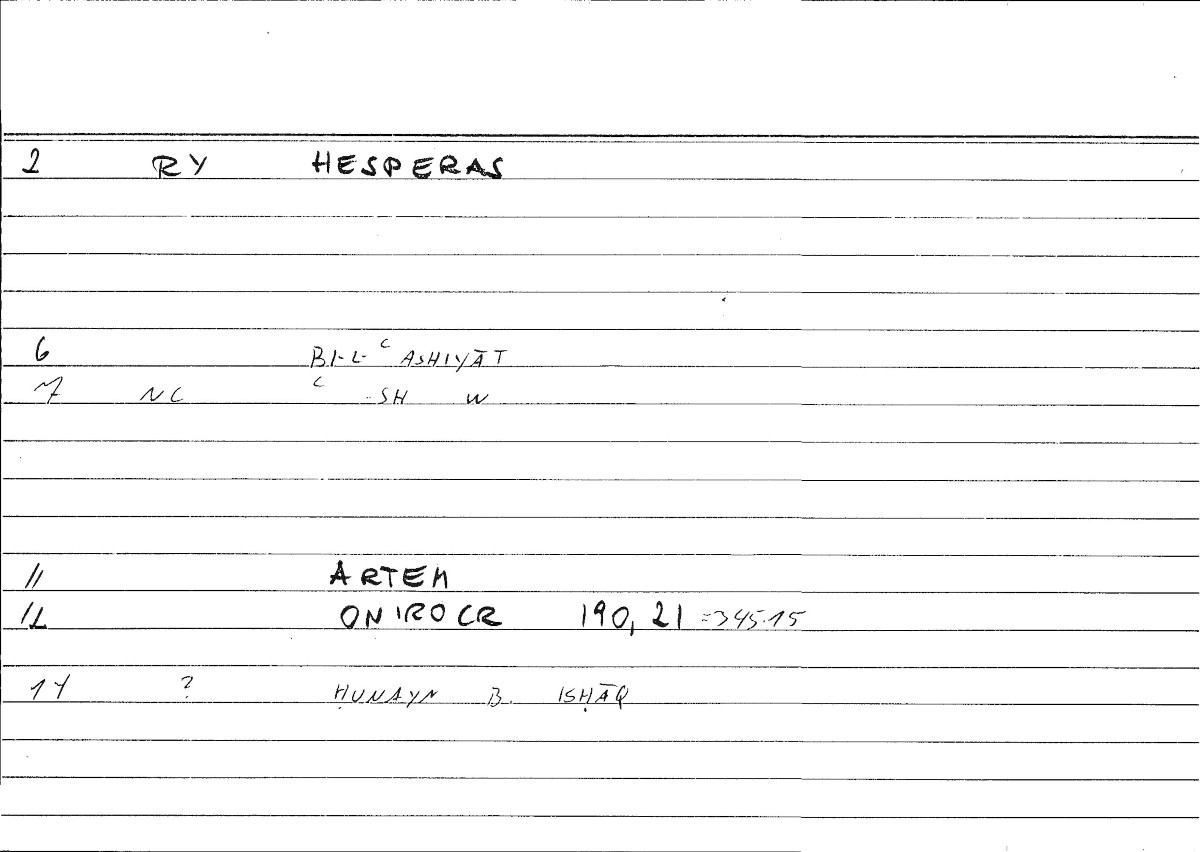 2 RY HESPERAS
6 BI-L-ʿASHIYĀT
7 NC ʿ -SH W
11 ARTEM
12 ONIROCR 190,21 =345.15
14 ? ḤUNAYN B. ISḤĀQ